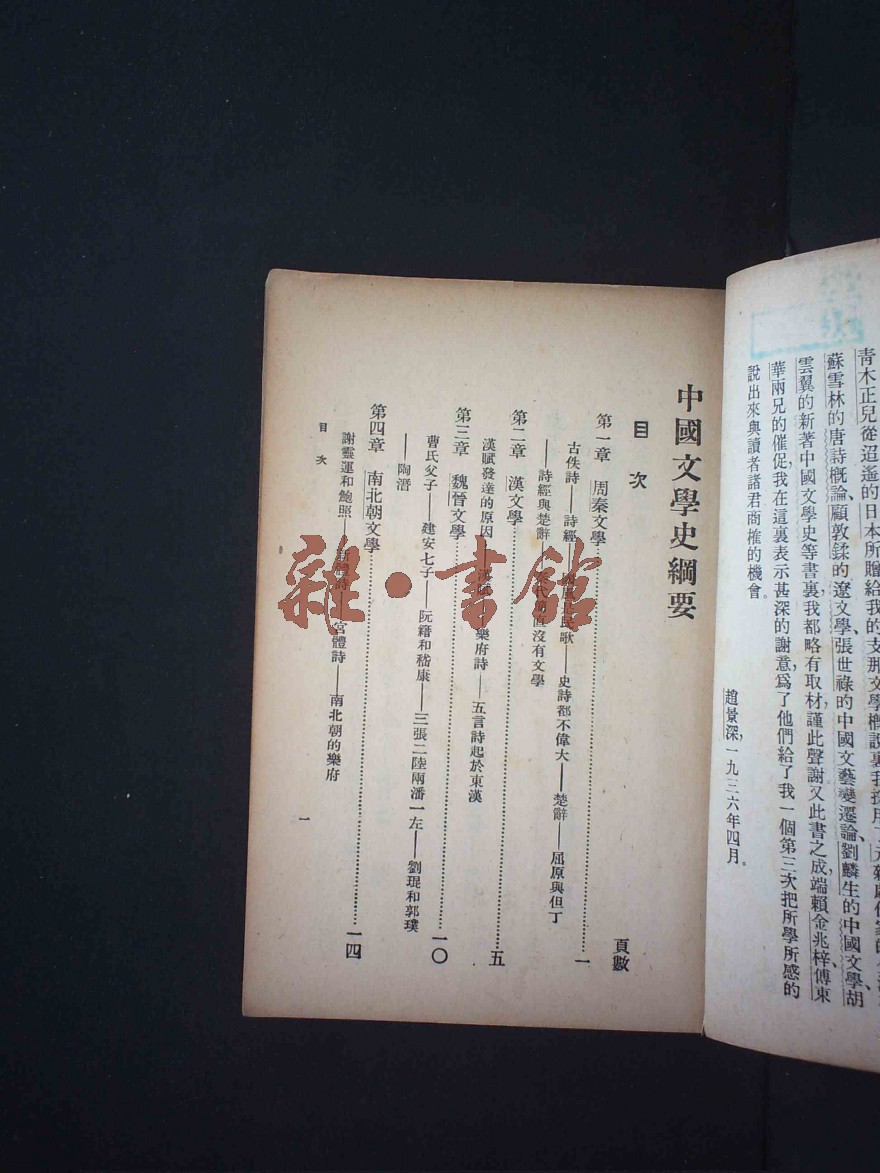 青木正兒從迢遙的日本所贈給我的支那文學概說裏我採用了元
蘇雪林的唐詩概論、顧敦鍒的遼文學、張世祿的中國文藝變遷論、劉麟生的中國文學、胡
雲翼的新著中國文學史等書裏我都略有取材謹此聲謝又此書之成，端賴金兆梓、傅東
華兩兄的催促，我在這裏表示甚深的謝意，爲了他們給了我一個第三次把所學所感的
說出來與讀者諸君商榷的機會。
趙景深，一九三六年四月。
中國文學史綱要
目次
頁數
第一章 周秦文學……一
古佚詩——詩經——國風是民歌——史詩都不偉大——楚辭——屈原與但丁
——詩經與楚辭——秦代簡直沒有文學
第二章 漢文學……五
漢賦發達的原因——漢賦——樂府詩——五言詩起於東漢
第三章 魏晉文學……一〇
曹氏父子——建安七子——阮籍和嵇康——三張二陸兩潘一左——劉琨和郭璞
——陶潛
第四章 南北朝文學……一四
謝靈運和鮑照——新體詩——宮體詩——南北朝的樂府
目次
一
雜·書館